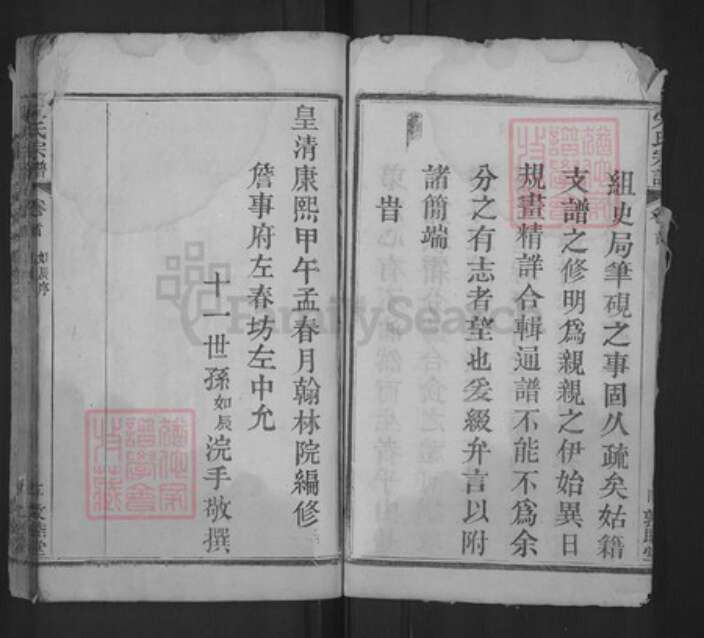 組史局筆硯之事固久疏矣姑籍
支譜之修明爲親親之伊始異日
規畫精詳合輯通譜不能不爲余
分之有志者望也爰綴弁言以附
諸簡端
旹
皇清康熙甲午孟春月翰林院編修
詹事府左春坊左中允
十一世孫如辰浣手敬撰
氏宗譜
卷首
如辰序
FamilySearch